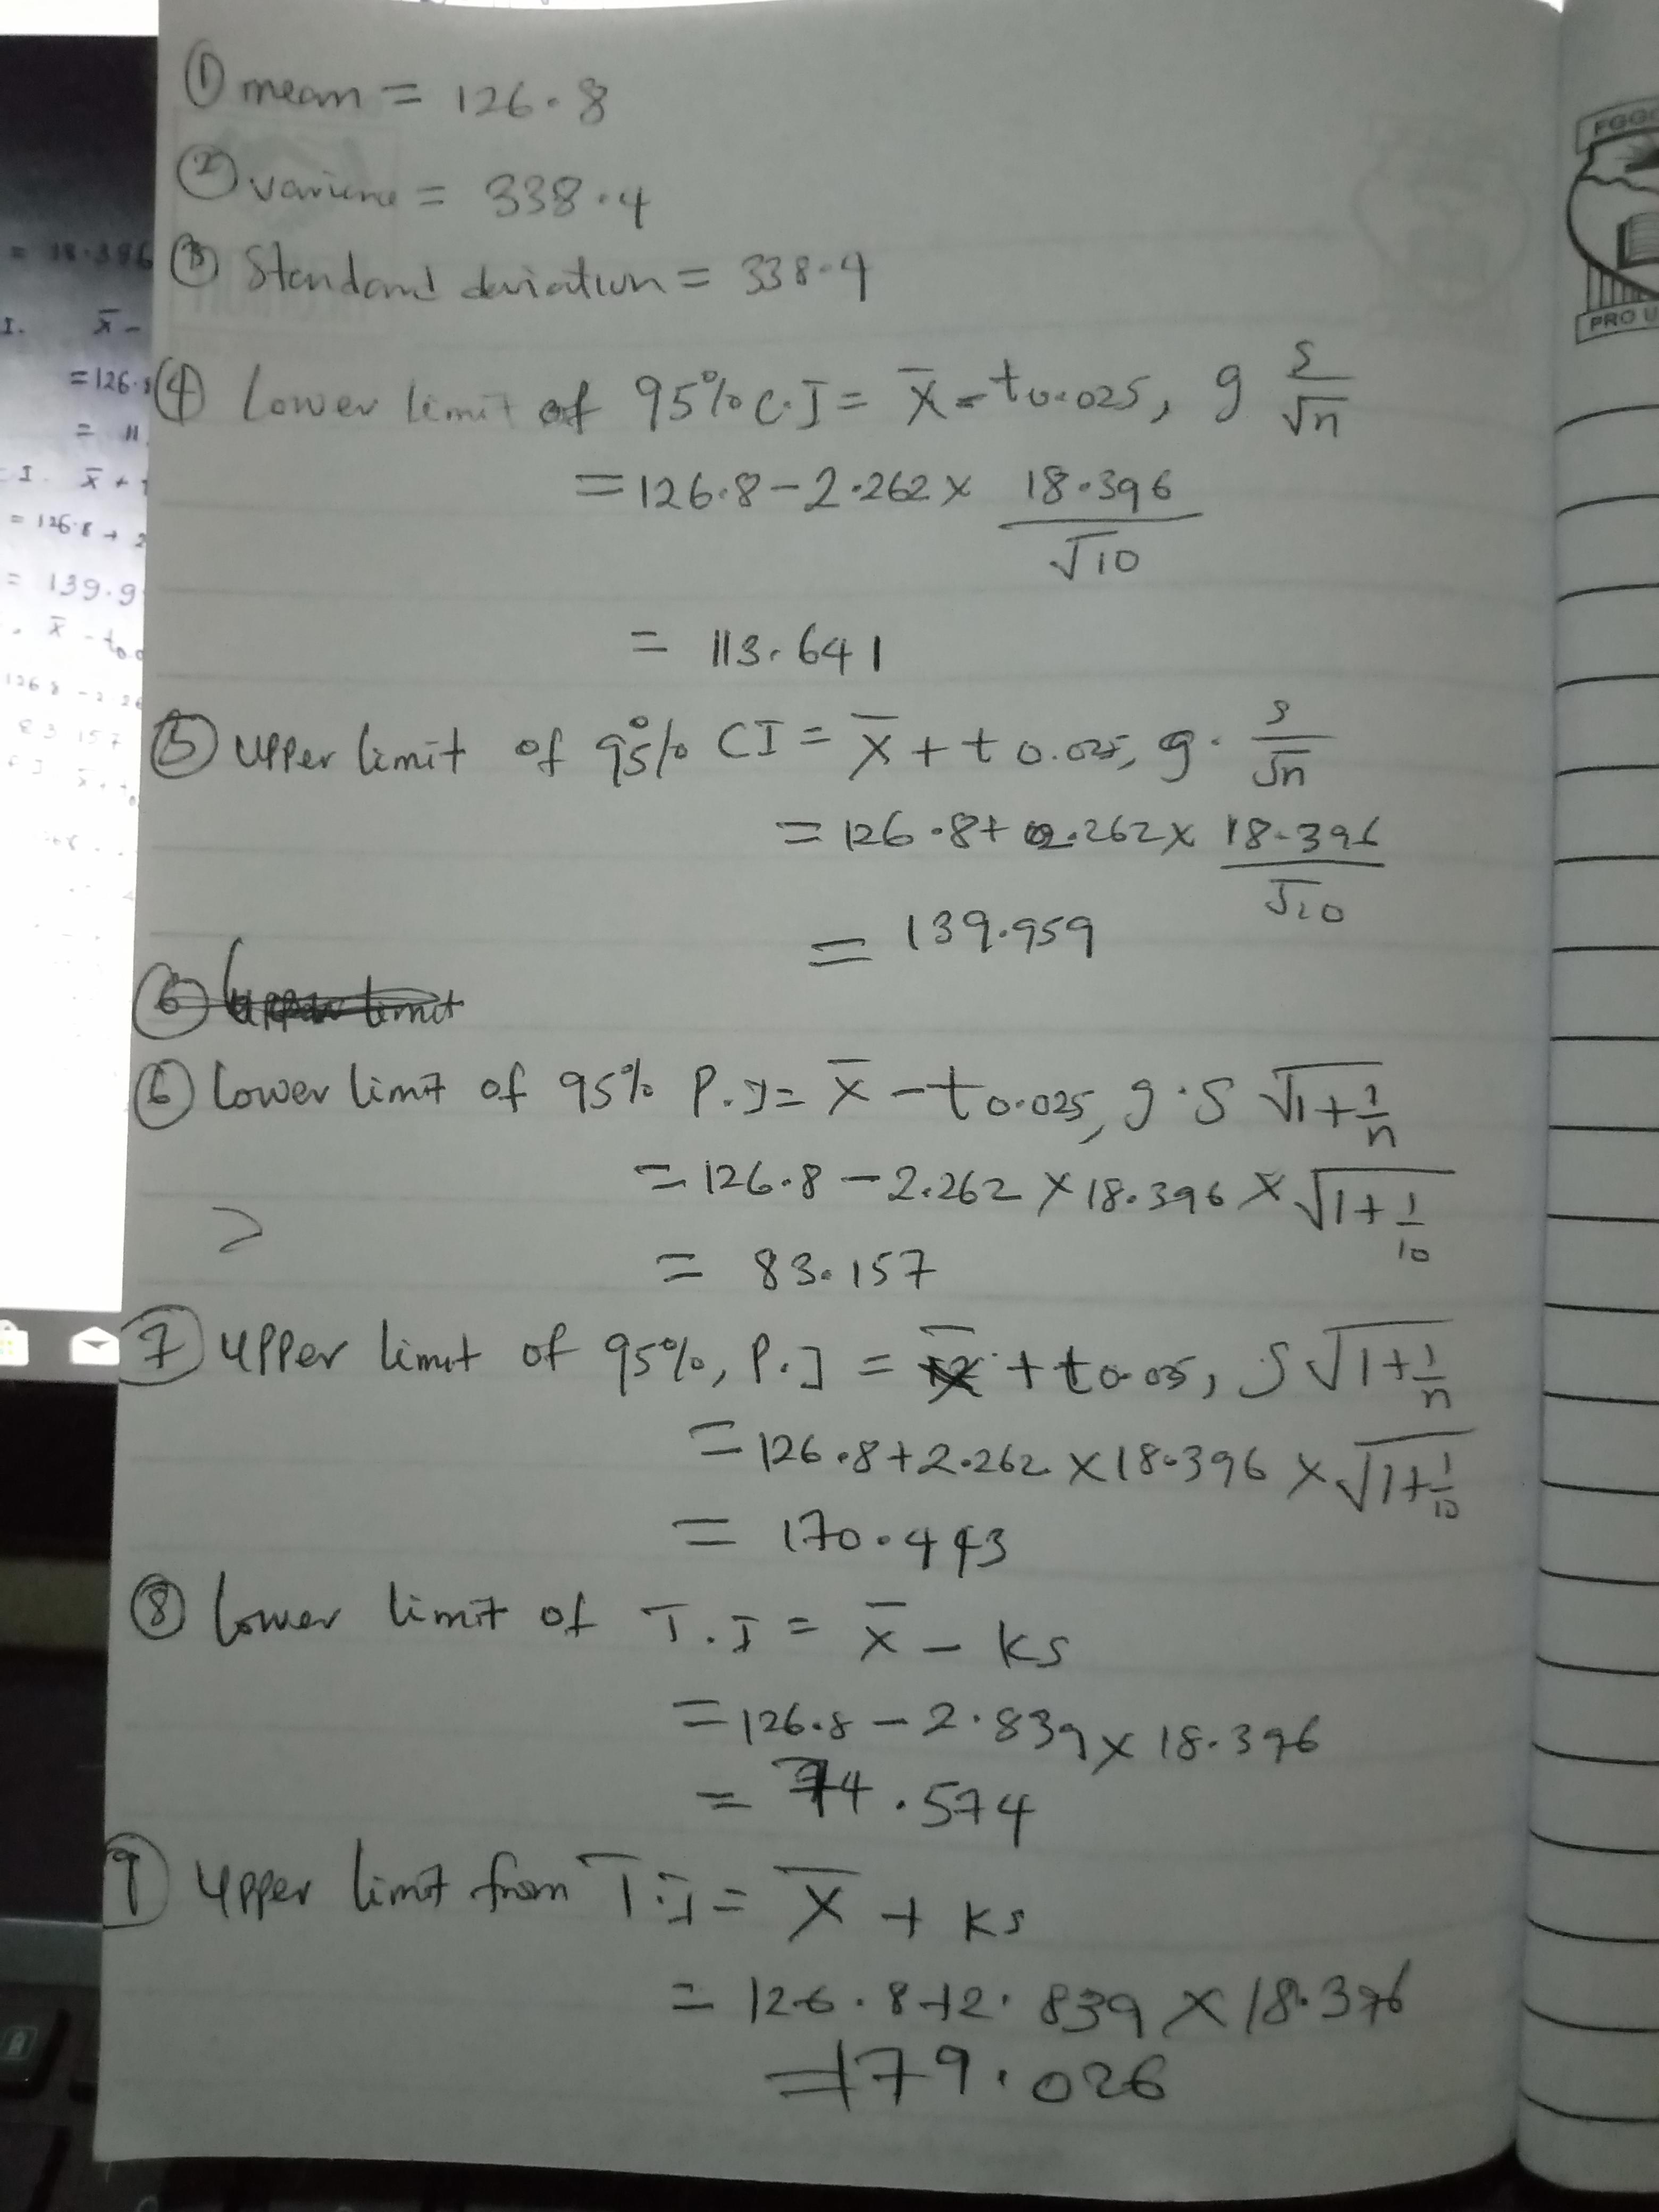 ① mean = 126.8
② variance = 338.4
③ Standard deviation = 338.4
④ Lower limit of 95% C.I = x̄ - t0.025, 9 s/√n
= 126.8 - 2.262 × 18.396/√10
= 113.641
⑤ Upper limit of 95% CI = x̄ + t0.025, 9 . s/√n
= 126.8 + 2.262 × 18.396/√10
= 139.959
⑥ Lower limit of 95% P.I = x̄ - t0.025, 9 . S √1+1/n
= 126.8 - 2.262 × 18.396 × √1+1/10
= 83.157
⑦ Upper limit of 95%, P.I = x̄ + t0.05, S √1+1/n
= 126.8 + 2.262 × 18.396 × √1+1/10
= 170.443
⑧ Lower limit of T.I = x̄ - ks
= 126.8 - 2.839 × 18.396
= 74.574
⑨ Upper limit from T.I = x̄ + ks
= 126.8 + 2.839 × 18.396
= 179.026
= 18.396
I. x̄ -
= 126.8
= 11
I. x̄ +
= 126.8 + 2
= 139.9
x̄ - t0.0
126.8 - 2.26
83.157
PRO U